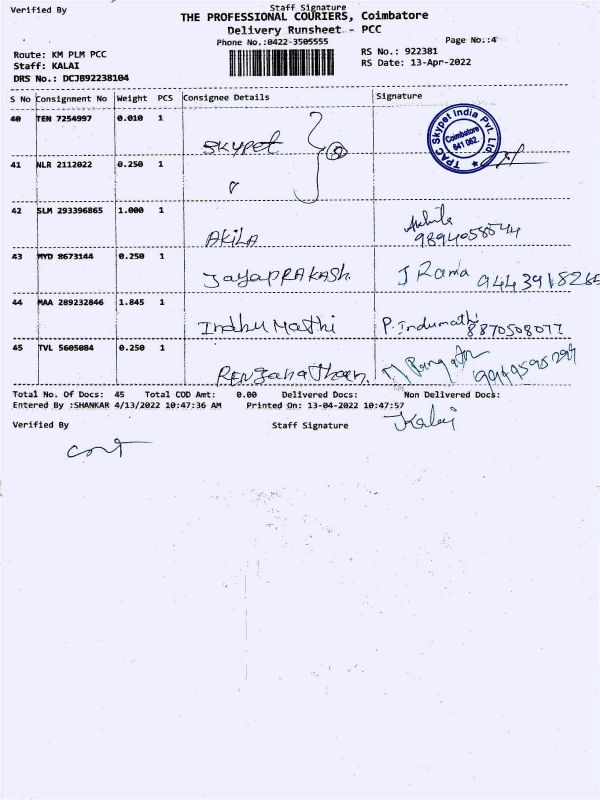 Verified By Staff Signature
THE PROFESSIONAL COURIERS, Coimbatore
Delivery Runsheet - PCC
Phone No.:0422-3505555 Page No.:4
Route: KM PLM PCC RS No.: 922381
Staff: KALAI RS Date: 13-Apr-2022
DRS No.: DCJB92238104
S No Consignment No Weight PCS Consignee Details Signature
40 TEN 7254997 0.010 1 Skypet
TPAC Skypet India Pvt. Ltd. Coimbatore 641 062.
41 NLR 2112022 0.250 1 "
42 SLM 293396865 1.000 1 AKilA Akhila 9894058544
43 MYD 8673144 0.250 1 JayapRAkash J Rama 9443918265
44 MAA 289232846 1.845 1 Indhu Mathi P. Indumathi 8870508077
45 TVL 5605084 0.250 1 RENganathan.
Total No. Of Docs: 45 Total COD Amt: 0.00 Delivered Docs: Non Delivered Docs:
Entered By :SHANKAR 4/13/2022 10:47:36 AM Printed On: 13-04-2022 10:47:57
Verified By Staff Signature Kalai